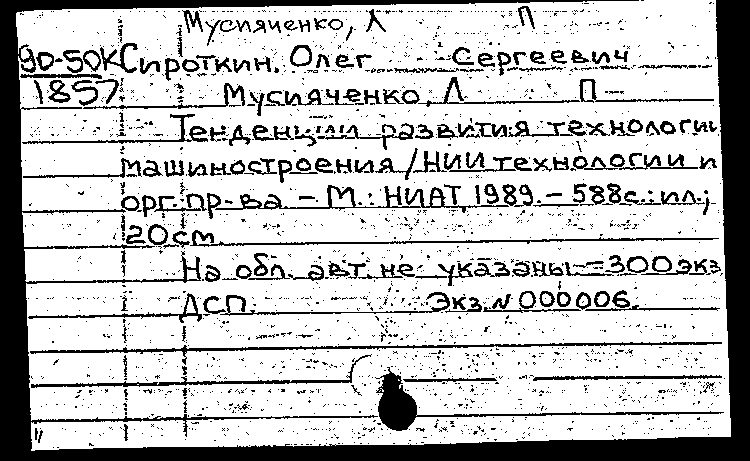 Мусияченко, Л П
90-50К Сироткин, Олег Сергеевич
1857 Мусияченко, Л П -
Тенденции развития технологии
машиностроения / НИИ технологии и
орг. пр-ва. - М.: НИАТ, 1989. - 588с.: ил.;
20см.
На обл. авт. не указаны. - 300экз.
ДСП. Экз. N 000006.